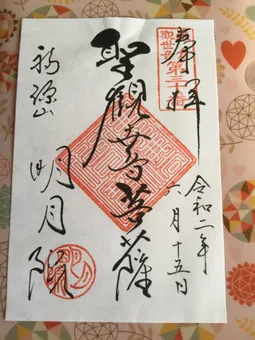 奉拝
第三十番
令和二年
六月十五日
聖観世音菩薩
福源山
明月院